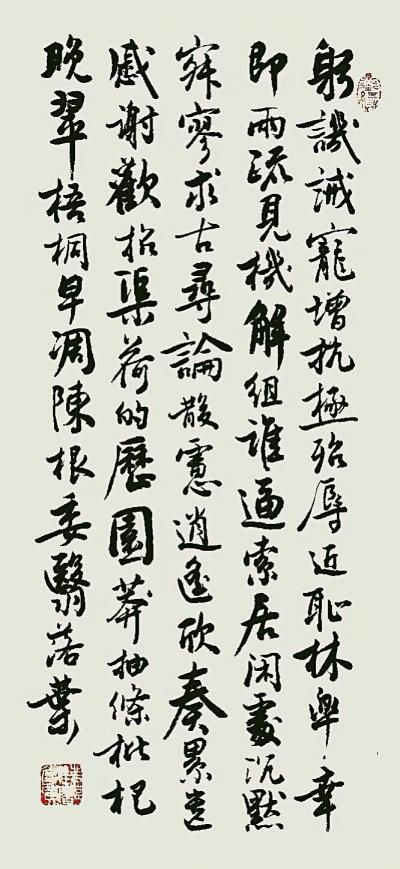 躬譏誡寵增抗極殆辱近恥林皋幸
即兩疏見機解組誰逼索居闲處沉默
寂寥求古尋論散慮逍遙欣奏累遣
慼謝歡招渠荷的歷園莽抽條枇杷
晚翠梧桐早凋陳根委翳落葉